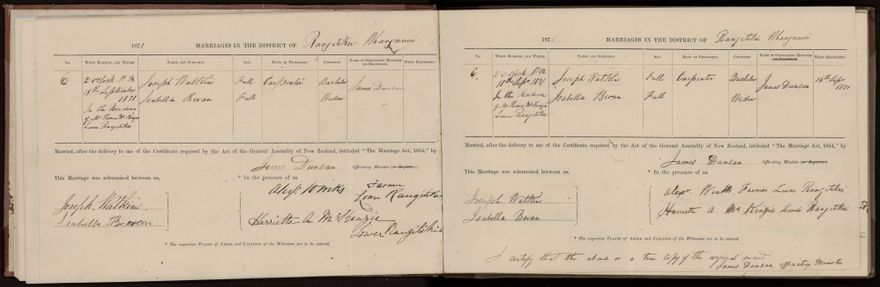 1871 MARRIAGES IN THE DISTRICT OF Rangitikei Wanganui
No. WHEN MARRIED, AND WHERE. NAMES AND SURNAMES. AGE. RANK OR PROFESSION. CONDITION. NAME OF OFFICIATING MINISTER WHEN REGISTERED.
6 2 o'clock P.M. Joseph Watkins Full Carpenter Bachelor James Duncan
18th September
1871 Isabella Bevan Full Widow
In the
Lower Rangitikei
Married, after the delivery to me of the Certificate required by the Act of the General Assembly of New Zealand, intituled "The Marriage Act, 1854," by
James Duncan Officiating Minister (or Registrar).
This Marriage was solemnised between us, * In the presence of us
Joseph Watkins
Isabella Bevan
Farmer
Lower Rangitikei
Harriette A McKenzie
Lower Rangitikei
* The respective PLACES OF ABODE AND CALLING OF the Witnesses are to be entered.
1871 MARRIAGES IN THE DISTRICT OF Rangitikei Wanganui
No. WHEN MARRIED, AND WHERE. NAMES AND SURNAMES. AGE. RANK OR PROFESSION. CONDITION. NAME OF OFFICIATING MINISTER WHEN REGISTERED.
6. 2 o'clock P.M. Joseph Watkins Full Carpenter Bachelor James Duncan 18th Sept 1871
18th Sept 1871 Isabella Bevan Full Widow
In the
Lower Rangitikei
Married, after the delivery to me of the Certificate required by the Act of the General Assembly of New Zealand, intituled "The Marriage Act, 1854," by
James Duncan Officiating Minister (or Registrar).
This Marriage was solemnised between us, * In the presence of us
Joseph Watkins
Isabella Bevan
Farmer Lower Rangitikei
Harriette A McKenzie Lower Rangitikei
* The respective PLACES OF ABODE AND CALLING OF the Witnesses are to be entered.
I certify that the above is a true copy of the original record
James Duncan officiating Minister